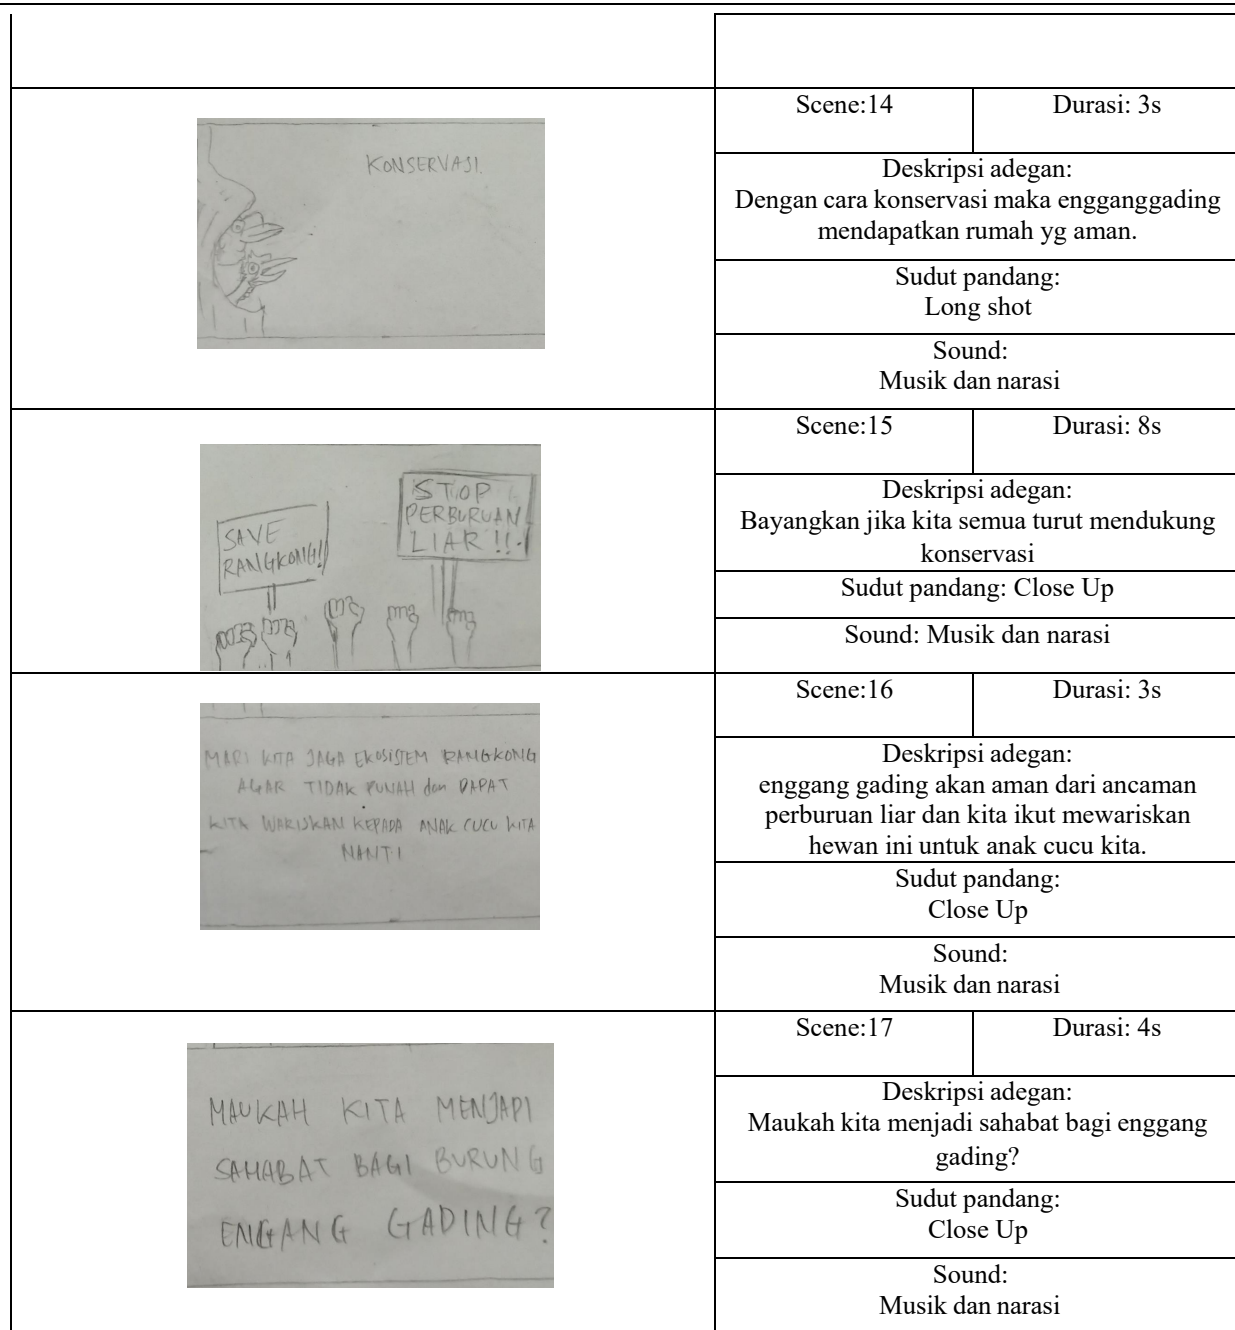 KONSERVASI.
Scene:14
Durasi: 3s
Deskripsi adegan:
Dengan cara konservasi maka engganggading
mendapatkan rumah yg aman.
Sudut pandang:
Long shot
Sound:
Musik dan narasi
SAVE
RANGKONG!!
STOP
PERBURUAN
LIAR !!
Scene:15
Durasi: 8s
Deskripsi adegan:
Bayangkan jika kita semua turut mendukung
konservasi
Sudut pandang: Close Up
Sound: Musik dan narasi
MARI KITA JAGA EKOSISTEM RANGKONG
AGAR TIDAK PUNAH dan DAPAT
KITA WARISKAN KEPADA ANAK CUCU KITA
NANTI
Scene:16
Durasi: 3s
Deskripsi adegan:
enggang gading akan aman dari ancaman
perburuan liar dan kita ikut mewariskan
hewan ini untuk anak cucu kita.
Sudut pandang:
Close Up
Sound:
Musik dan narasi
MAUKAH KITA MENJADI
SAHABAT BAGI BURUNG
ENGGANG GADING?
Scene:17
Durasi: 4s
Deskripsi adegan:
Maukah kita menjadi sahabat bagi enggang
gading?
Sudut pandang:
Close Up
Sound:
Musik dan narasi